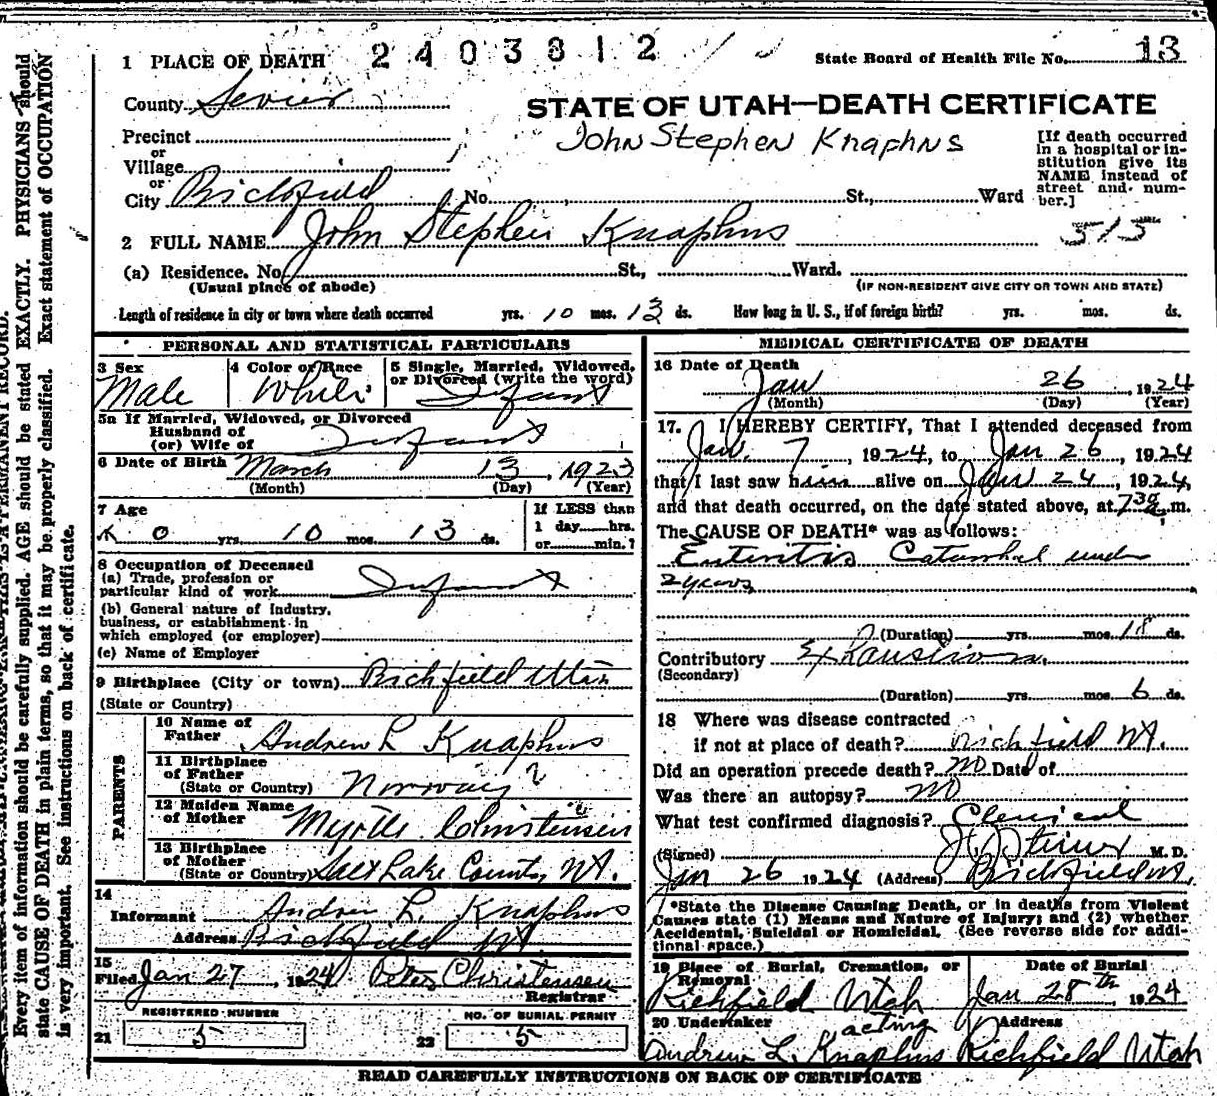 Every item of information should be carefully supplied. AGE should be stated EXACTLY. PHYSICIANS should
state CAUSE OF DEATH in plain terms, so that it may be properly classified. Exact statement of OCCUPATION
is very important. See instructions on back of certificate.
2403812
State Board of Health File No. 13
1 PLACE OF DEATH
County Sevier
STATE OF UTAH—DEATH CERTIFICATE
Precinct
John Stephen Knaphus
or
Village
or
City Richfield No. St., Ward
[If death occurred
in a hospital or in-
stitution give its
NAME instead of
street and num-
ber.]
2 FULL NAME John Stephen Knaphus 515
(a) Residence. No. St., Ward.
(Usual place of abode) (IF NON-RESIDENT GIVE CITY OR TOWN AND STATE)
Length of residence in city or town where death occurred yrs. 10 mos. 13 ds. How long in U. S., if of foreign birth? yrs. mos. ds.
PERSONAL AND STATISTICAL PARTICULARS
3 Sex Male
4 Color or Race White
5 Single, Married, Widowed,
or Divorced (write the word) Infant
5a If Married, Widowed, or Divorced
Husband of
(or) Wife of Infant
6 Date of Birth March 13, 1923
(Month) (Day) (Year)
7 Age
0 yrs. 10 mos. 13 ds.
If LESS than
1 day hrs.
or min.?
8 Occupation of Deceased
(a) Trade, profession or
particular kind of work Infant
(b) General nature of industry,
business, or establishment in
which employed (or employer)
(c) Name of Employer
9 Birthplace (City or town) Richfield Utah
(State or Country)
PARENTS
10 Name of
Father Andrew L Knaphus
11 Birthplace
of Father
(State or Country) Norway
12 Maiden Name
of Mother Myrtle Christensen
13 Birthplace
of Mother
(State or Country) Salt Lake County, Ut.
14
Informant Andrew L. Knaphus
Address Richfield Ut.
15
Filed Jan 27, 1924 Peter Christensen
Registrar
REGISTERED NUMBER
21 5
NO. OF BURIAL PERMIT
22 5
MEDICAL CERTIFICATE OF DEATH
16 Date of Death
Jan 26, 1924
(Month) (Day) (Year)
17. I HEREBY CERTIFY, That I attended deceased from
Jan. 7, 1924, to Jan 26, 1924
that I last saw him alive on Jan 24, 1924,
and that death occurred, on the date stated above, at 7 30 m.
The CAUSE OF DEATH* was as follows:
Enteritis Catarrhal under
2 years
(Duration) yrs. mos. 18 ds.
Contributory Exhaustion.
(Secondary)
(Duration) yrs. mos. 6 ds.
18 Where was disease contracted
if not at place of death? Richfield Ut.
Did an operation precede death? no Date of
Was there an autopsy? no
What test confirmed diagnosis? Clinical
(Signed) Steiner M. D.
Jan 26 1924 (Address) Richfield Ut.
*State the Disease Causing Death, or in deaths from Violent
Causes state (1) Means and Nature of Injury; and (2) whether
Accidental, Suicidal or Homicidal. (See reverse side for addi-
tional space.)
19 Place of Burial, Cremation, or
Removal Richfield Utah
Date of Burial
Jan 28th, 1924
20 Undertaker acting
Andrew L. Knaphus
Address
Richfield Utah
READ CAREFULLY INSTRUCTIONS ON BACK OF CERTIFICATE